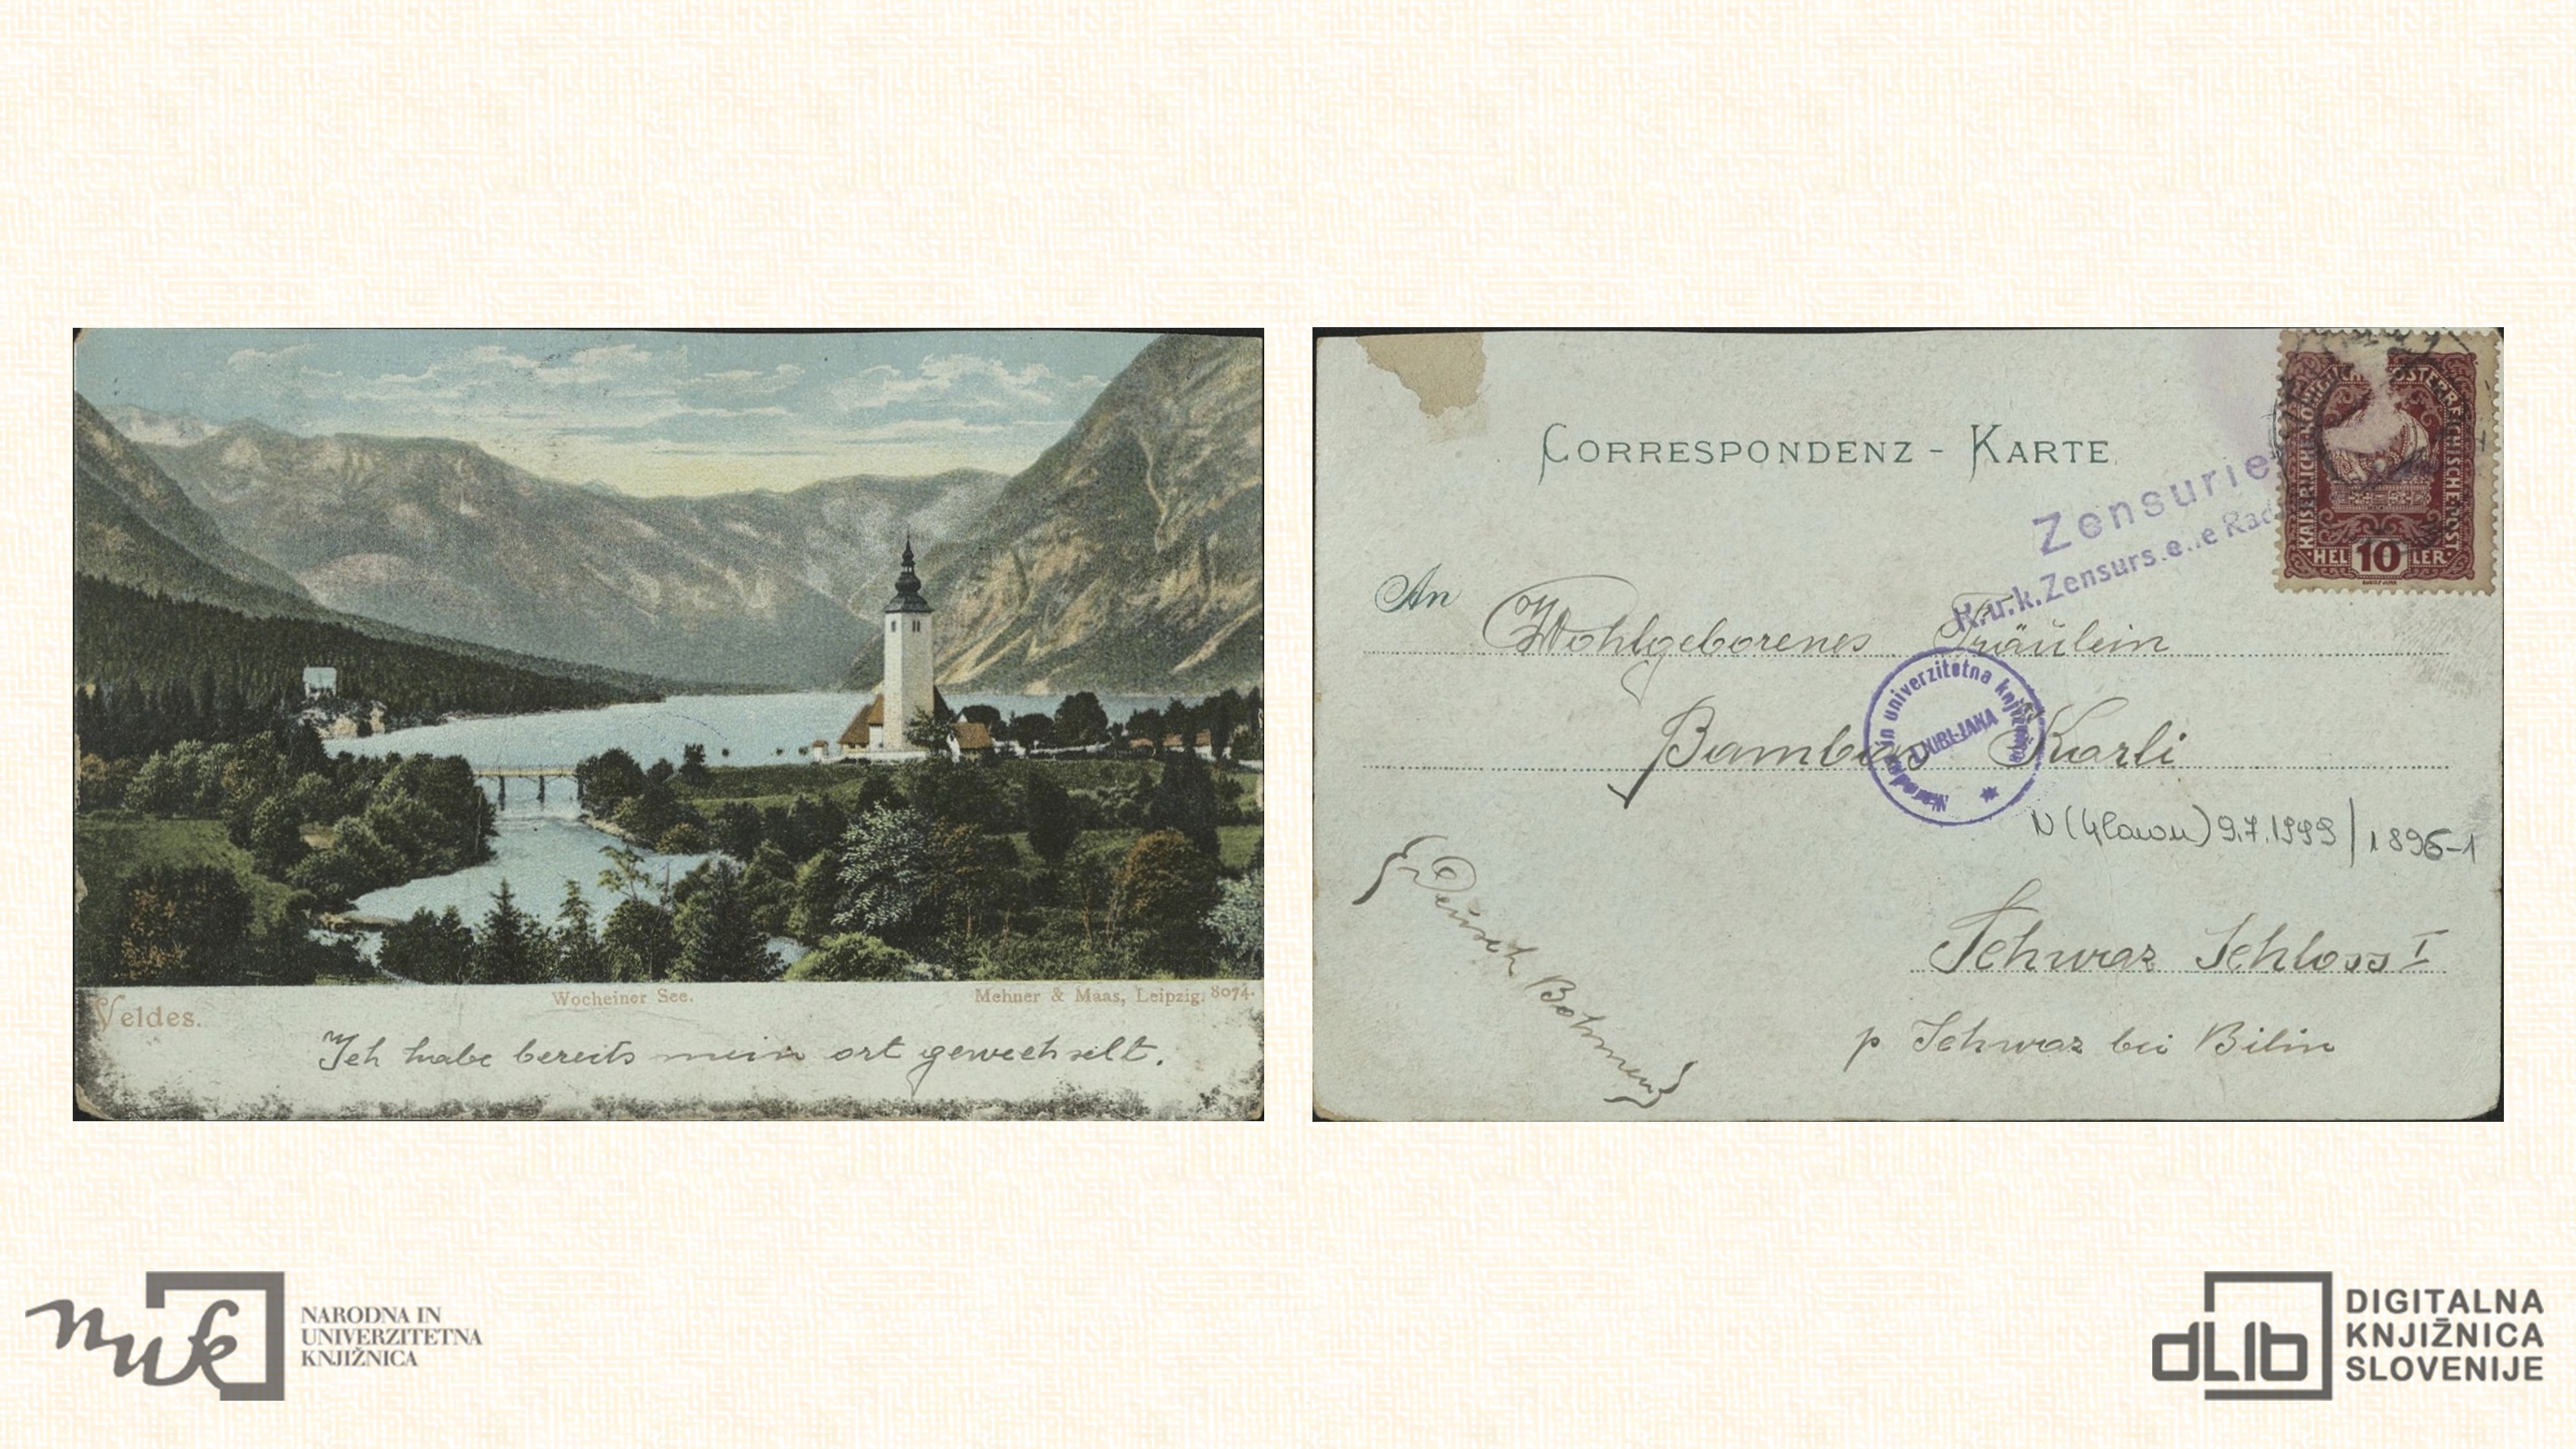 Veldes.
Wocheiner See.
Mehner & Maas, Leipzig. 8074.
Ich habe bereits mein ort gewechselt.
CORRESPONDENZ - KARTE
Zensurie
K.u.k. Zensurs e e Rad
KAISERLICHE KÖNIGLICHE ÖSTERREICHISCHE POST
HELLER 10
An Wohlgeborenes Fräulein
Karli
Narodna in univerzitetna knjižnica
LJUBLJANA
9.7.1999 / 1896-1
Schwaz Schloss I
p Schwaz bei Bilin
(Deusch Böhmen)
nuk
NARODNA IN
UNIVERZITETNA
KNJIŽNICA
dLib
DIGITALNA
KNJIŽNICA
SLOVENIJE